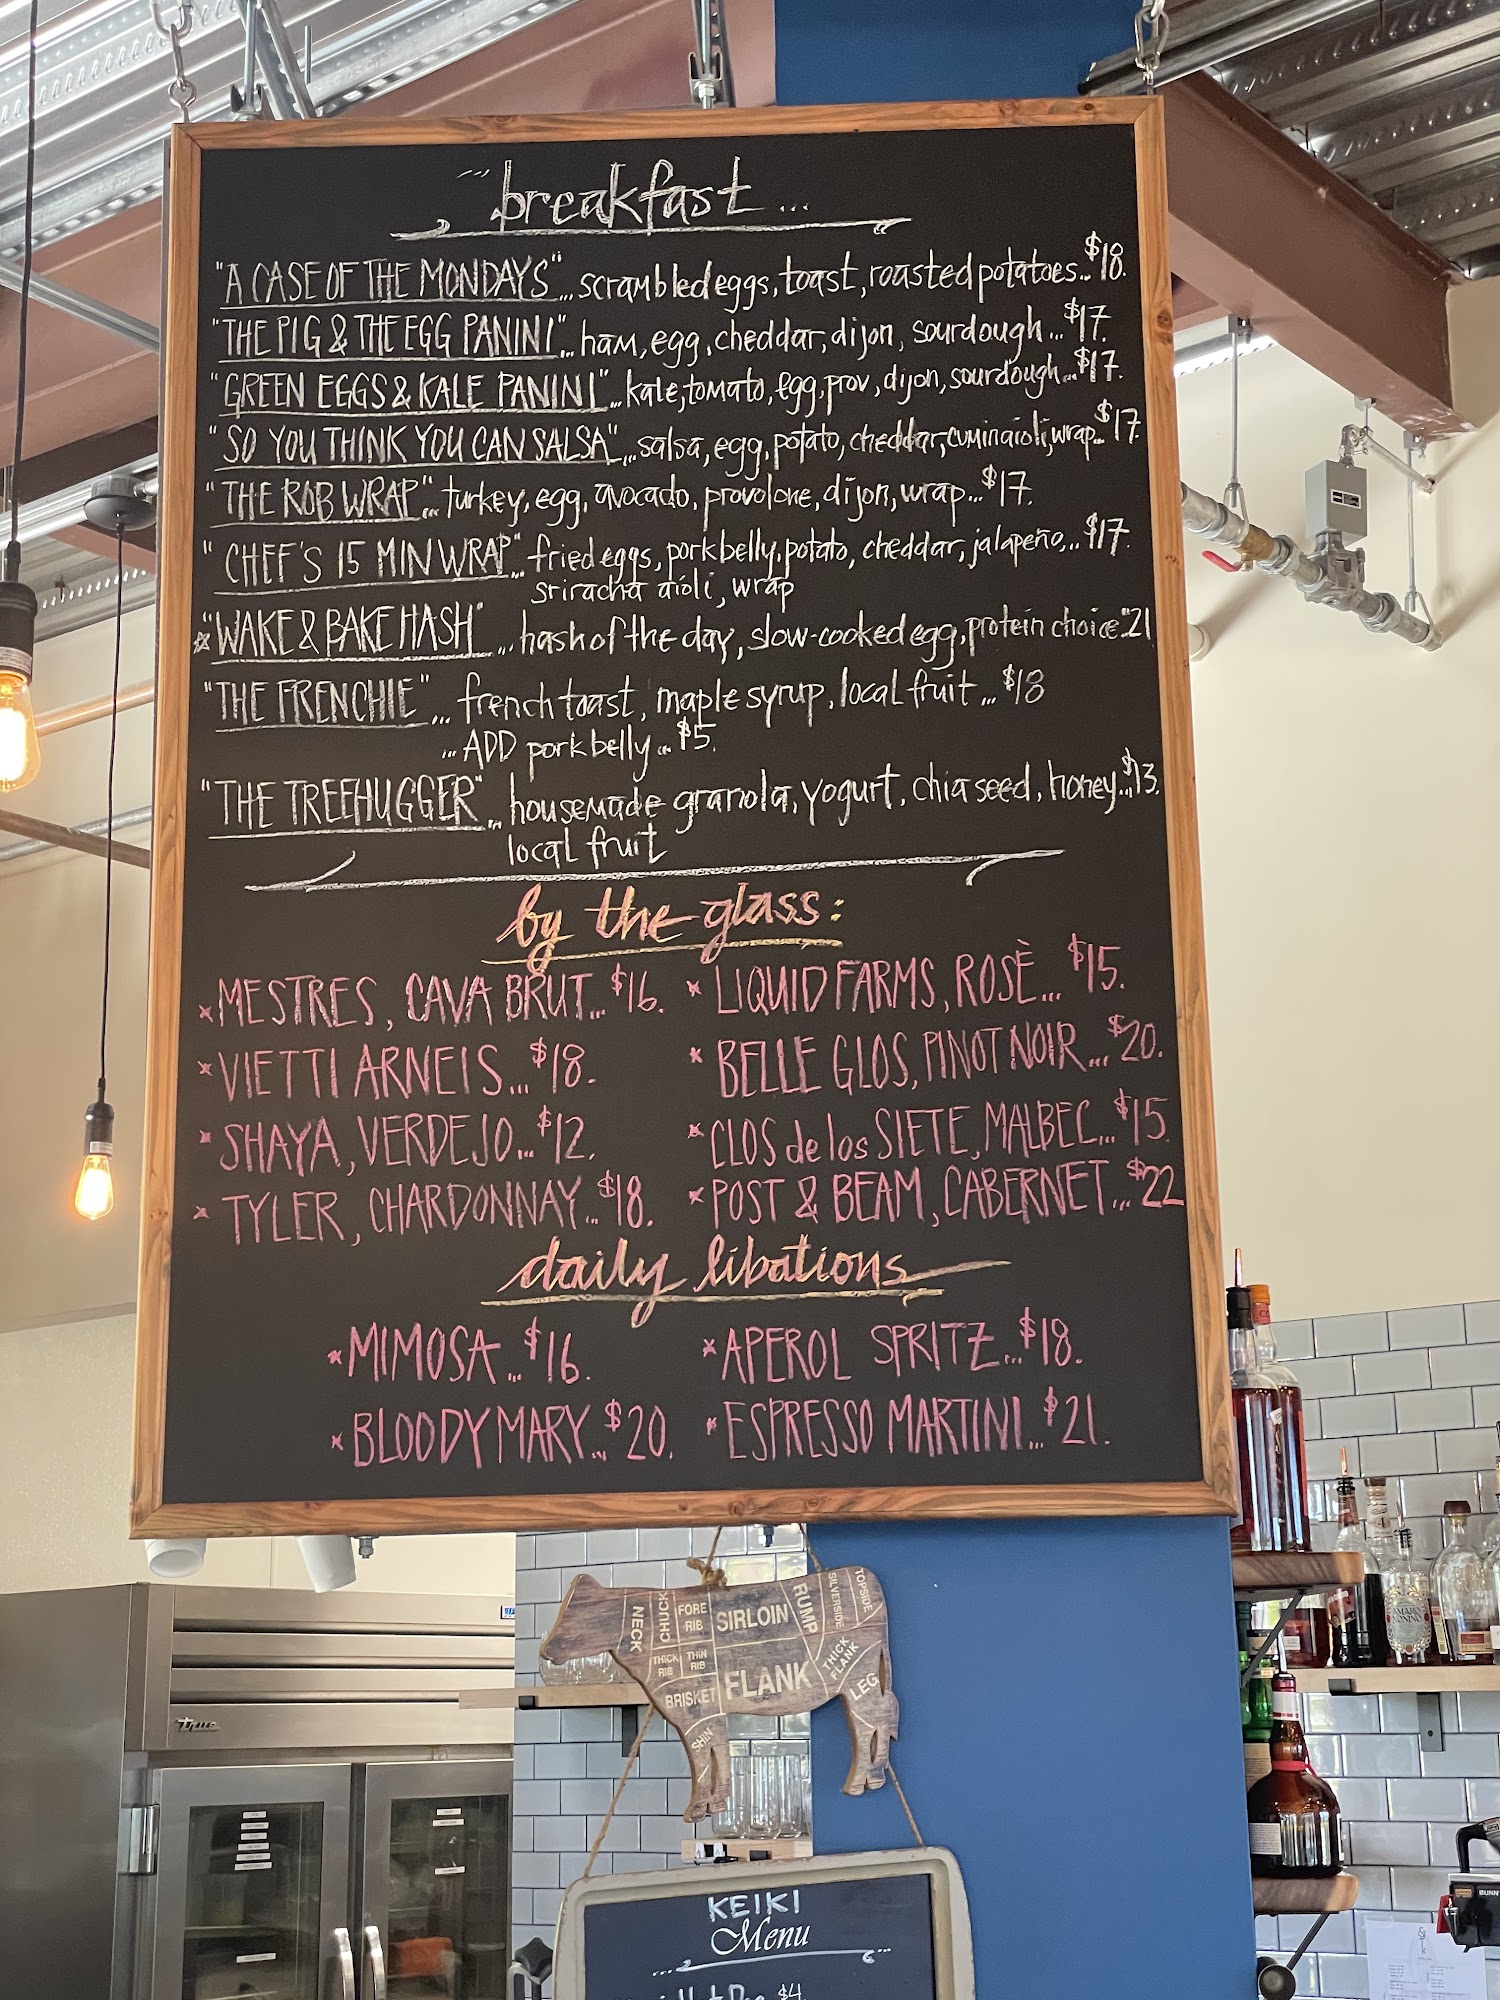 ... breakfast ...
"A CASE OF THE MONDAYS"... scrambled eggs, toast, roasted potatoes... $18.
"THE PIG & THE EGG PANINI"... ham, egg, cheddar, dijon, sourdough... $17.
"GREEN EGGS & KALE PANINI"... kale, tomato, egg, prov, dijon, sourdough... $17.
"SO YOU THINK YOU CAN SALSA"... salsa, egg, potato, cheddar, cumin aioli, wrap... $17.
"THE ROB WRAP"... turkey, egg, avocado, provolone, dijon, wrap... $17.
"CHEF'S 15 MIN WRAP"... fried eggs, pork belly, potato, cheddar, jalapeño... $17.
sriracha aioli, wrap
☆"WAKE & BAKE HASH" ... hash of the day, slow-cooked egg, protein choice..21
"THE FRENCHIE"... french toast, maple syrup, local fruit ... $18
... ADD pork belly... $5.
"THE TREEHUGGER"... housemade granola, yogurt, chia seed, honey... $13.
local fruit
by the glass:
*MESTRES, CAVA BRUT... $16. * LIQUID FARMS, ROSÈ... $15.
*VIETTI ARNEIS... $18. * BELLE GLOS, PINOT NOIR... $20.
*SHAYA, VERDEJO... $12. * CLOS de los SIETE, MALBEC... $15
* TYLER, CHARDONNAY... $18. * POST & BEAM, CABERNET... $22
daily libations
*MIMOSA... $16. *APEROL SPRITZ... $18.
*BLOODY MARY... $20. *ESPRESSO MARTINI... $21.
NECK CHUCK FORE RIB SIRLOIN RUMP SILVERSIDE TOPSIDE
THICK RIB THIN RIB FLANK THICK FLANK LEG
BRISKET
SHIN
true
KEIKI
Menu
$4
AMARO NONINO
BUNN